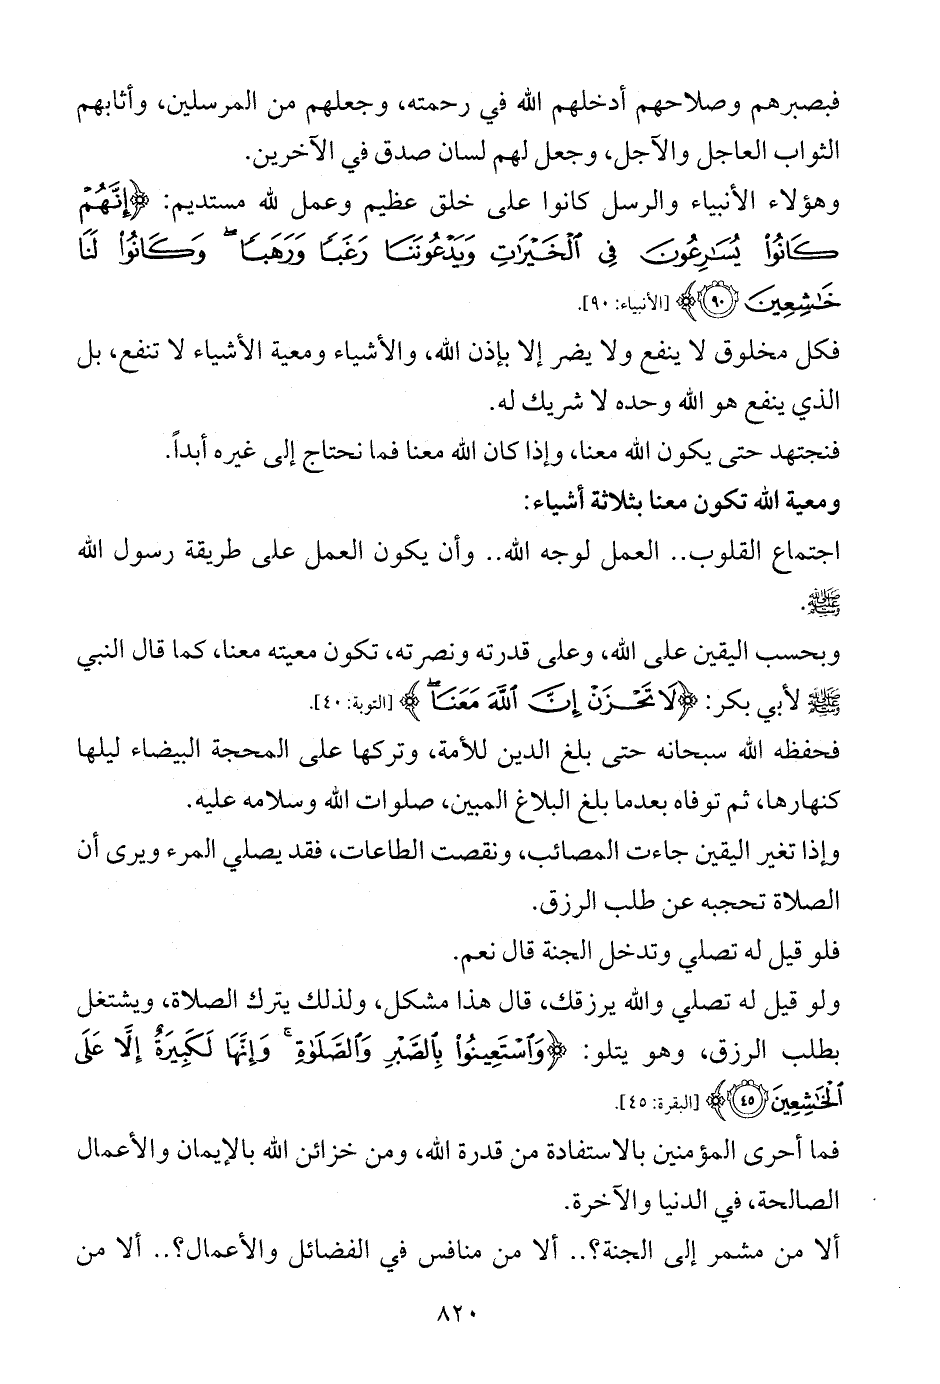 فبصبرهم وصلاحهم أدخلهم الله في رحمته، وجعلهم من المرسلين، وأثابهم
الثواب العاجل والآجل، وجعل لهم لسان صدق في الآخرين.
وهؤلاء الأنبياء والرسل كانوا على خلق عظيم وعمل لله مستديم: ﴿إِنَّهُمْ
كَانُوا۟ يُسَـٰرِعُونَ فِى ٱلْخَيْرَٰتِ وَيَدْعُونَنَا رَغَبًا وَرَهَبًا ۖ وَكَانُوا۟ لَنَا
خَـٰشِعِينَ ﴿٩٠﴾﴾ [الأنبياء: ٩٠].
فكل مخلوق لا ينفع ولا يضر إلا بإذن الله، والأشياء ومعية الأشياء لا تنفع، بل
الذي ينفع هو الله وحده لا شريك له.
فنجتهد حتى يكون الله معنا، وإذا كان الله معنا فما نحتاج إلى غيره أبداً.
ومعية الله تكون معنا بثلاثة أشياء:
اجتماع القلوب.. العمل لوجه الله.. وأن يكون العمل على طريقة رسول الله
ﷺ.
وبحسب اليقين على الله، وعلى قدرته ونصرته، تكون معيته معنا، كما قال النبي
ﷺ لأبي بكر: ﴿لَا تَحْزَنْ إِنَّ ٱللَّهَ مَعَنَا ۖ﴾ [التوبة: ٤٠].
فحفظه الله سبحانه حتى بلغ الدين للأمة، وتركها على المحجة البيضاء ليلها
كنهارها، ثم توفاه بعدما بلغ البلاغ المبين، صلوات الله وسلامه عليه.
وإذا تغير اليقين جاءت المصائب، ونقصت الطاعات، فقد يصلي المرء ويرى أن
الصلاة تحجبه عن طلب الرزق.
فلو قيل له تصلي وتدخل الجنة قال نعم.
ولو قيل له تصلي والله يرزقك، قال هذا مشكل، ولذلك يترك الصلاة، ويشتغل
بطلب الرزق، وهو يتلو: ﴿وَٱسْتَعِينُوا۟ بِٱلصَّبْرِ وَٱلصَّلَوٰةِ ۚ وَإِنَّهَا لَكَبِيرَةٌ إِلَّا عَلَى
ٱلْخَـٰشِعِينَ ﴿٤٥﴾﴾ [البقرة: ٤٥].
فما أحرى المؤمنين بالاستفادة من قدرة الله، ومن خزائن الله بالإيمان والأعمال
الصالحة، في الدنيا والآخرة.
ألا من مشمر إلى الجنة؟.. ألا من منافس في الفضائل والأعمال؟.. ألا من
٨٢٠